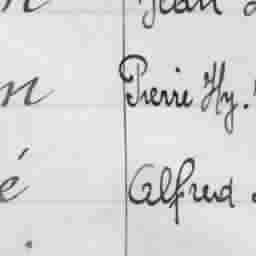 n Jean
n Pierre Hy.
é Alfred